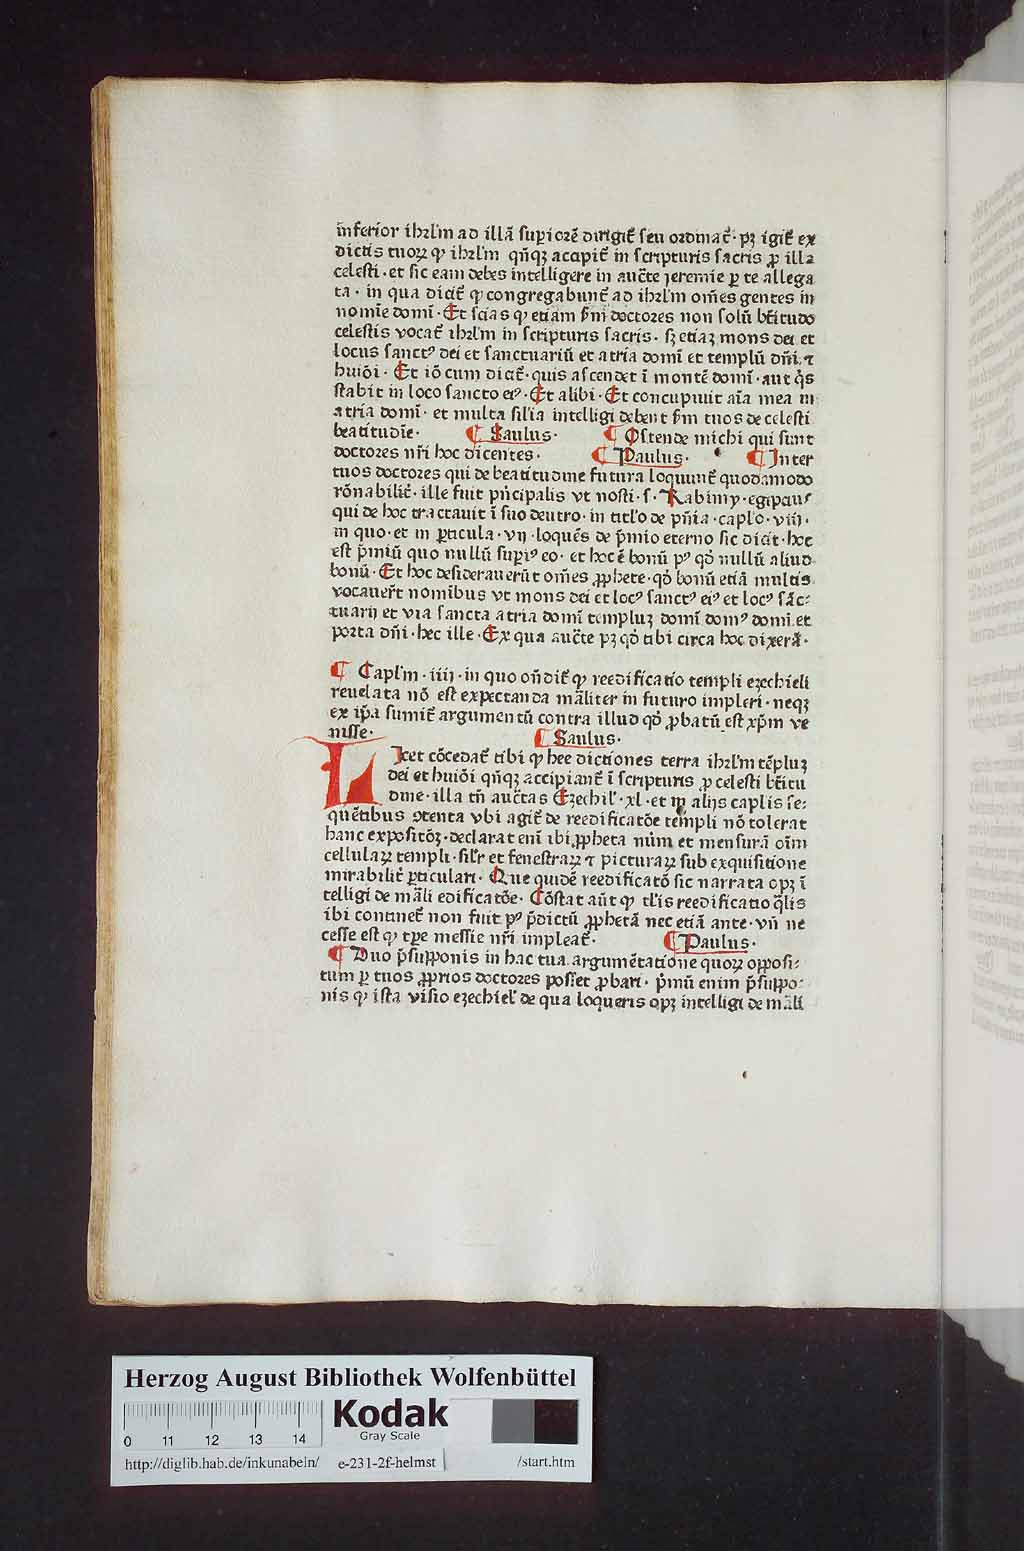 inferior ihrl'm ad illã superiorẽ dirigit̃ seu ordinat̃. pꝫ igit̃ ex
dictis tuoꝝ ꝙ ihrl'm qñqꝫ accipit̃ in scripturis sacris ꝓ illa
celesti. et sic eam debes intelligere in auc̃te jeremie ꝑ te allega
ta. in qua dicit̃ ꝙ congregabunt̃ ad ihrl'm om̃es gentes in
nomĩe domĩ. Et scias ꝙ etiam s̃m doctores non solũ bt̃itudo
celestis vocat̃ ihrl'm in scripturis sacris. sꝫ etiaꝫ mons dei et
locus sanctꝰ dei et sanctuariũ et atria domĩ et templũ dñi. ⁊
huiõi. Et iõ cum dicit̃. quis ascendet ĩ montẽ domĩ. aut q̃s
stabit in loco sancto eiꝰ. Et alibi. Et concupiuit aĩa mea in
atria domĩ. et multa sil'ia intelligi debent s̃m tuos de celesti
beatitudĩe. ¶ Saulus. ¶ Ostende michi qui sunt
doctores nr̃i hoc dicentes. ¶ Paulus. ¶ Inter
tuos doctores qui de beatitudine futura loquunt̃ quodamodo
rõnabilit̃. ille fuit pñcipalis vt nosti. s. Rabimỹ. egipcius
qui de hoc tractauit ĩ suo deutro. in titl'o de pñia. capl'o. viij.
in quo. et in ꝑticula. vij. loquẽs de p̃mio eterno sic dicit. hoc
est p̃miũ quo nullũ supiꝰ eo. et hoc ẽ bonũ pꝰ qd̃ nullũ aliud
bonũ. Et hoc desiderauerũt om̃es ꝓphete. qd̃ bonũ etiã multis
vocauer̃t nomĩbus vt mons dei et locꝰ sanctꝰ eiꝰ et locꝰ sãc-
tuarij et via sancta atria domĩ templuꝫ domĩ domꝰ domĩ. et
porta dñi. hec ille. Ex qua auc̃te pꝫ qd̃ tibi circa hoc dixerã.
¶ Capl'm. iiij. in quo oñdit̃ ꝙ reedificatio templi ezechieli
reuelata nõ est expectanda mãliter in futuro impleri. neqꝫ
ex ip̃a sumit̃ argumentũ contra illud qd̃ ꝓbatũ est xp̃m ve
nisse. ¶ Saulus.
LIcet cõcedat̃ tibi ꝙ hee dictiones terra ihrl'm tẽpluꝫ
dei et huiõi qñqꝫ accipiant̃ ĩ scripturis ꝓ celesti bt̃itu
dine. illa tñ auc̃tas Ezechil'. xl. et in alijs caplis se-
quẽtibus ↄtenta vbi agit̃ de reedificatõe templi nõ tolerat
hanc expositõꝫ. declarat enĩ ibi ꝓpheta nũm et mensurã oĩm
cellulaꝝ templi. sil'r et fenestraꝝ ⁊ picturaꝝ sub exquisitione
mirabilit̃ ꝑticulari. Que quidẽ reedificatõ sic narrata opꝫ ĩ
telligi de mãli edificatõe. Cõstat aũt ꝙ tl'is reedificatio q̃lis
ibi continet̃ non fuit pꝰ p̃dictũ ꝓphetã nec etiã ante. vñ ne
cesse est ꝙ tꝑe messie nr̃i impleat̃. ¶ Paulus.
¶ Duo p̃supponis in hac tua argumẽtatione quoꝝ opposi-
tum ꝑ tuos ꝓprios doctores posset ꝓbari. p̃mũ enim p̃suppo-
nis ꝙ ista visio ezechiel' de qua loqueris opꝫ intelligi de mãli
Herzog August Bibliothek Wolfenbüttel
Kodak
Gray Scale
0 11 12 13 14
http://diglib.hab.de/inkunabeln/ e-231-2f-helmst /start.htm